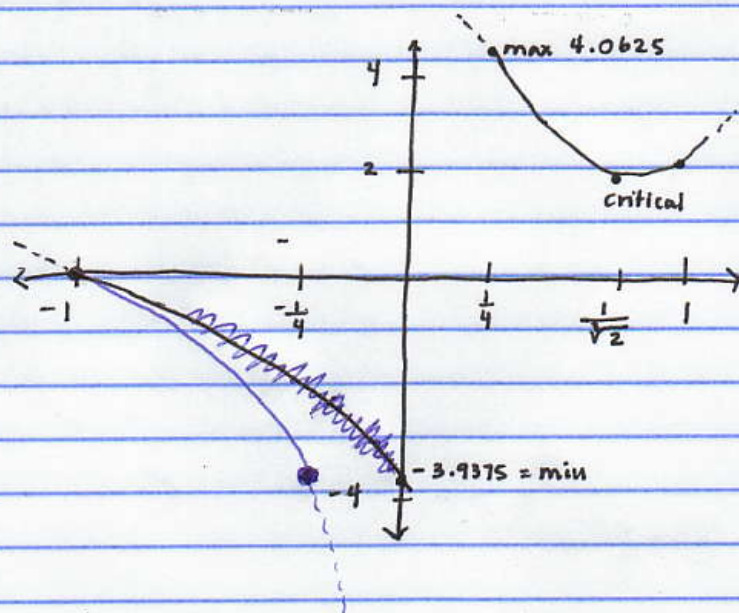 max 4.0625
4
2
critical
-
-1
-1/4
1/4
1/√2
1
-3.9375 = min
-4